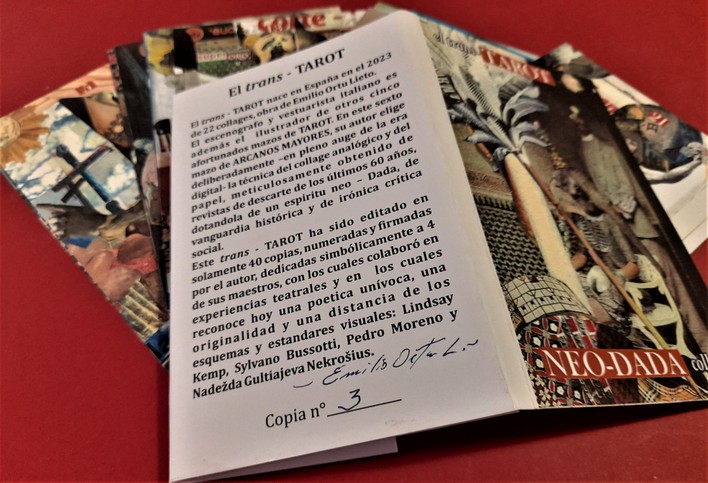 El trans - TAROT
El trans - TAROT nace en España en el 2023
de 22 collages, obra de Emilio Ortu Lieto.
El escenografo y vestuarista italiano es
además el ilustrador de otros cinco
afortunados mazos de TAROT. En este sexto
mazo de ARCANOS MAYORES, su autor elige
deliberadamente –en pleno auge de la era
digital- la técnica del collage analógico y del
papel, meticulosamente obtenido de
revistas de descarte de los últimos 60 años,
dotandola de un espiritu neo – Dada, de
vanguardia histórica y de irónica crítica
social.
Este trans - TAROT ha sido editado en
solamente 40 copias, numeradas y firmadas
por el autor, dedicadas simbólicamente a 4
de sus maestros, con los cuales colaboró en
experiencias teatrales y en los cuales
reconoce hoy una poetica unívoca, una
originalidad y una distancia de los
esquemas y estandares visuales: Lindsay
Kemp, Sylvano Bussotti, Pedro Moreno y
Nadežda Gultiajeva Nekrošius.
Emilio Ortu L.
Copia n° 3
el trans-TAROT
NEO-DADA
coll